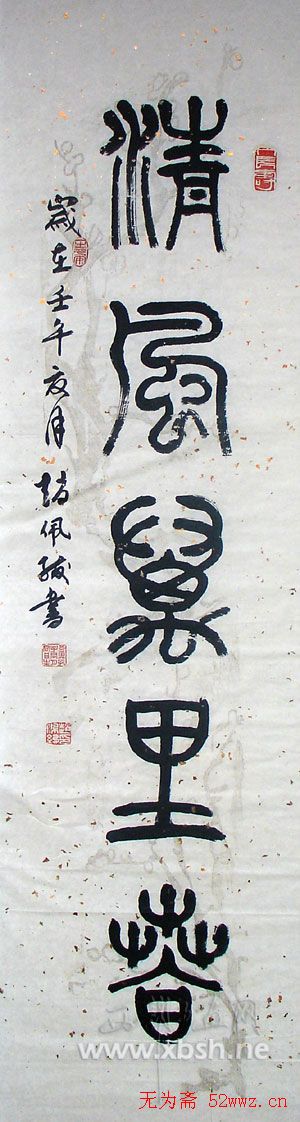 清風萬里春
歲在壬午月趙佩書
www.xbsh.ne
无为斋 52wwz.cn